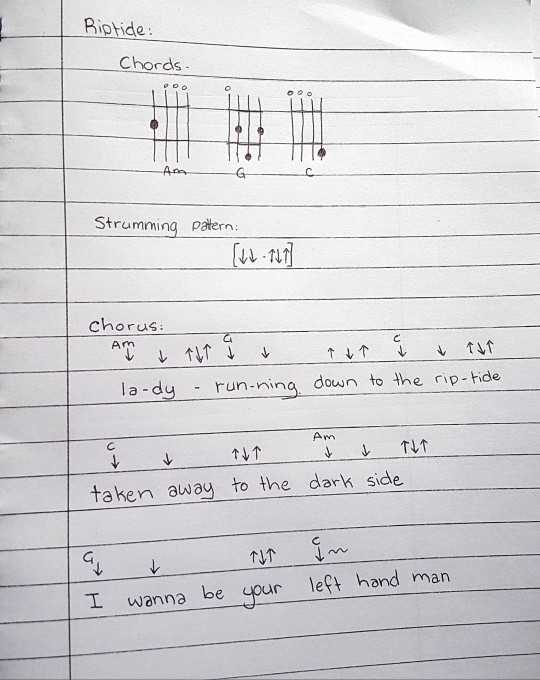 Riptide:
Chords.
o o o o o o o
Am G C
Strumming pattern:
[↓↓ - ↑↓↑]
Chorus:
Am G C
↓ ↓ ↑↓↑ ↓ ↓ ↑ ↓ ↑ ↓ ↓ ↑↓↑
la-dy - run-ning down to the rip-tide
C Am
↓ ↓ ↑↓↑ ↓ ↓ ↑↓↑
taken away to the dark side
G C
↓ ↓ ↑↓↑ ↓~
I wanna be your left hand man